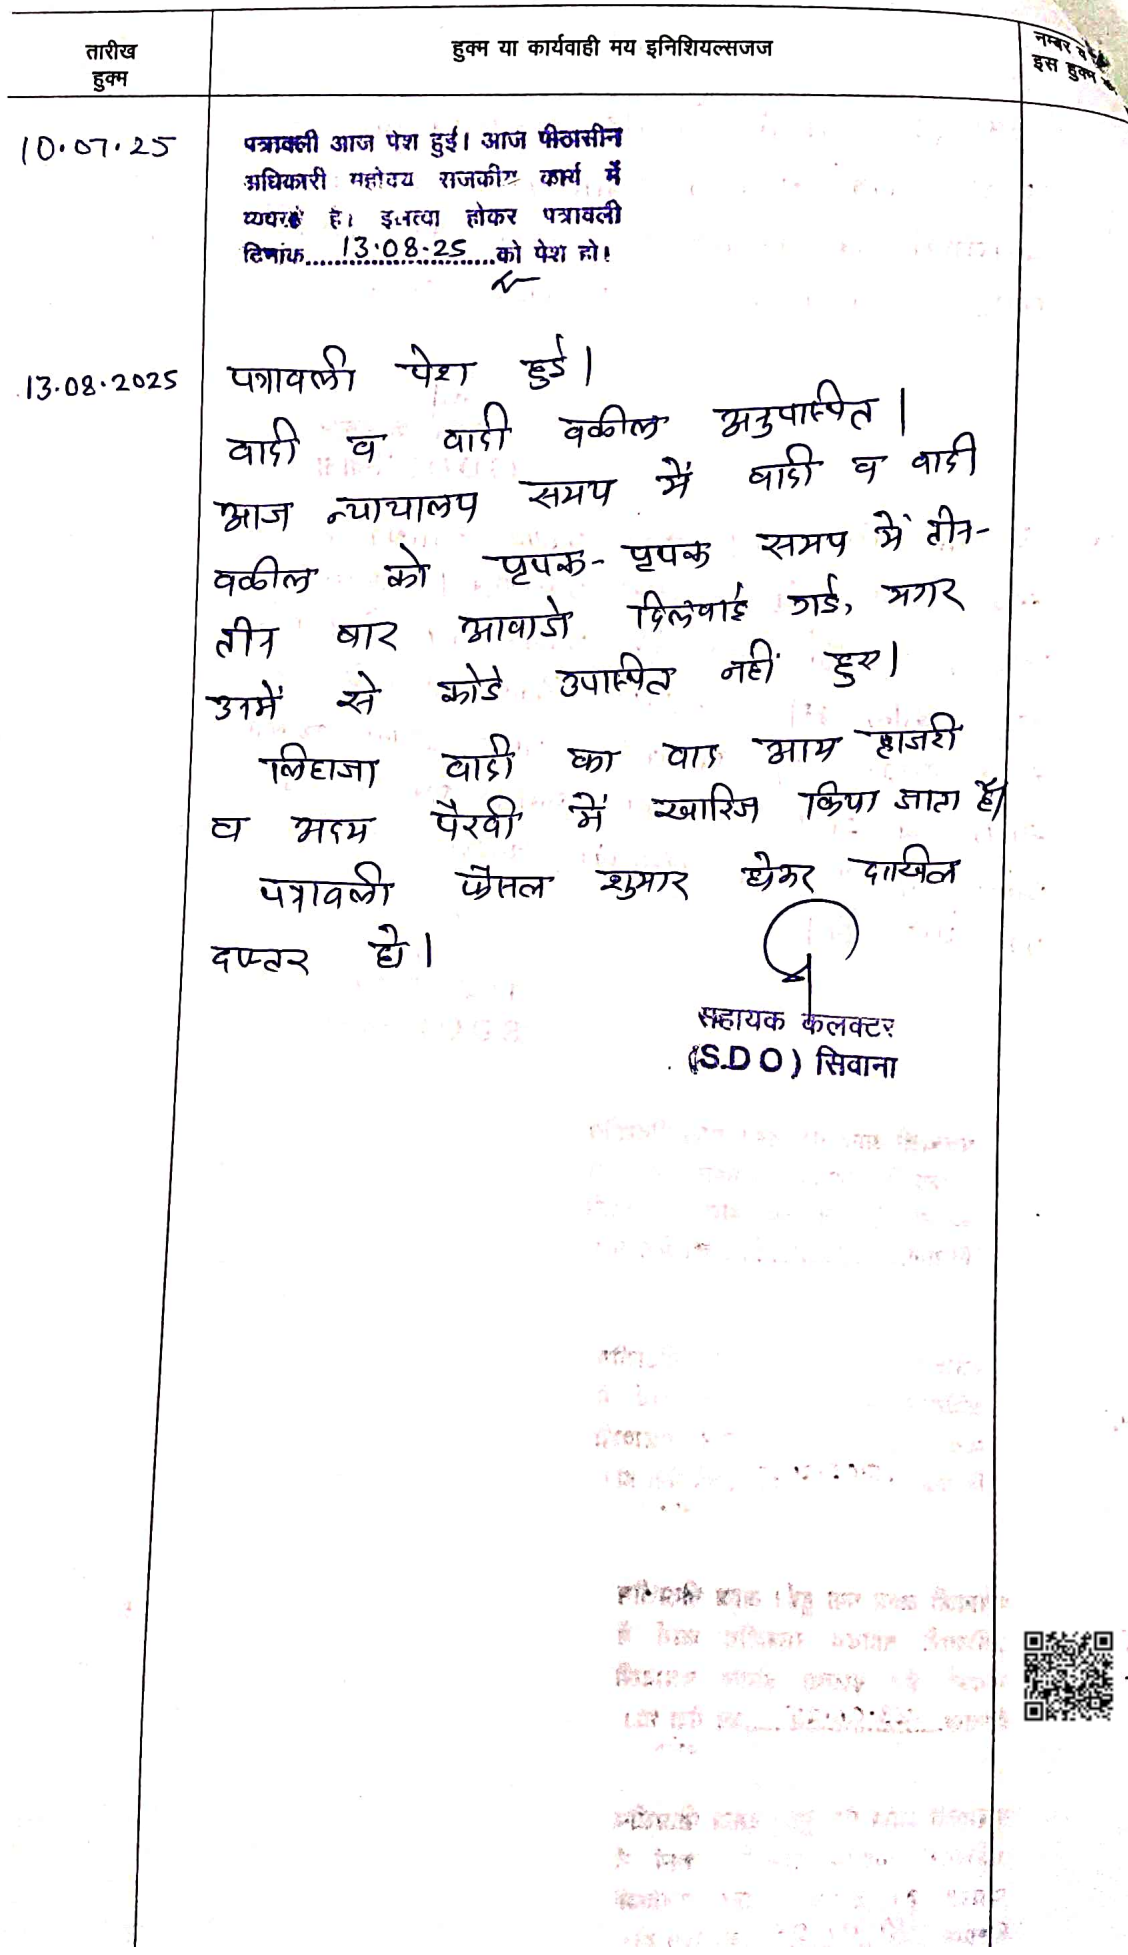 तारीख
हुक्म
हुक्म या कार्यवाही मय इनिशियल्सजज
नम्बर व
इस हुक्म
10.07.25
पत्रावली आज पेश हुई। आज पीठासीन
अधिकारी महोदय राजकीय कार्य में
व्यस्त है। इल्तवा होकर पत्रावली
दिनांक 13.08.25 को पेश हो।
13.08.2025
पत्रावली पेश हुई।
वादी व वादी वकील अनुपस्थित।
आज न्यायालय समय में वादी व वादी
वकील को पृथक-पृथक समय में तीन-
तीन बार आवाजे दिलवाई गई, मगर
उनमें से कोई उपस्थित नहीं हुए।
लिहाजा वादी का वाद आम हाजरी
व अदम पैरवी में खारिज किया जाता है।
पत्रावली फैसल शुमार होकर दाखिल
दफ्तर हो।
सहायक कलक्टर
(S.D.O) सिवाना